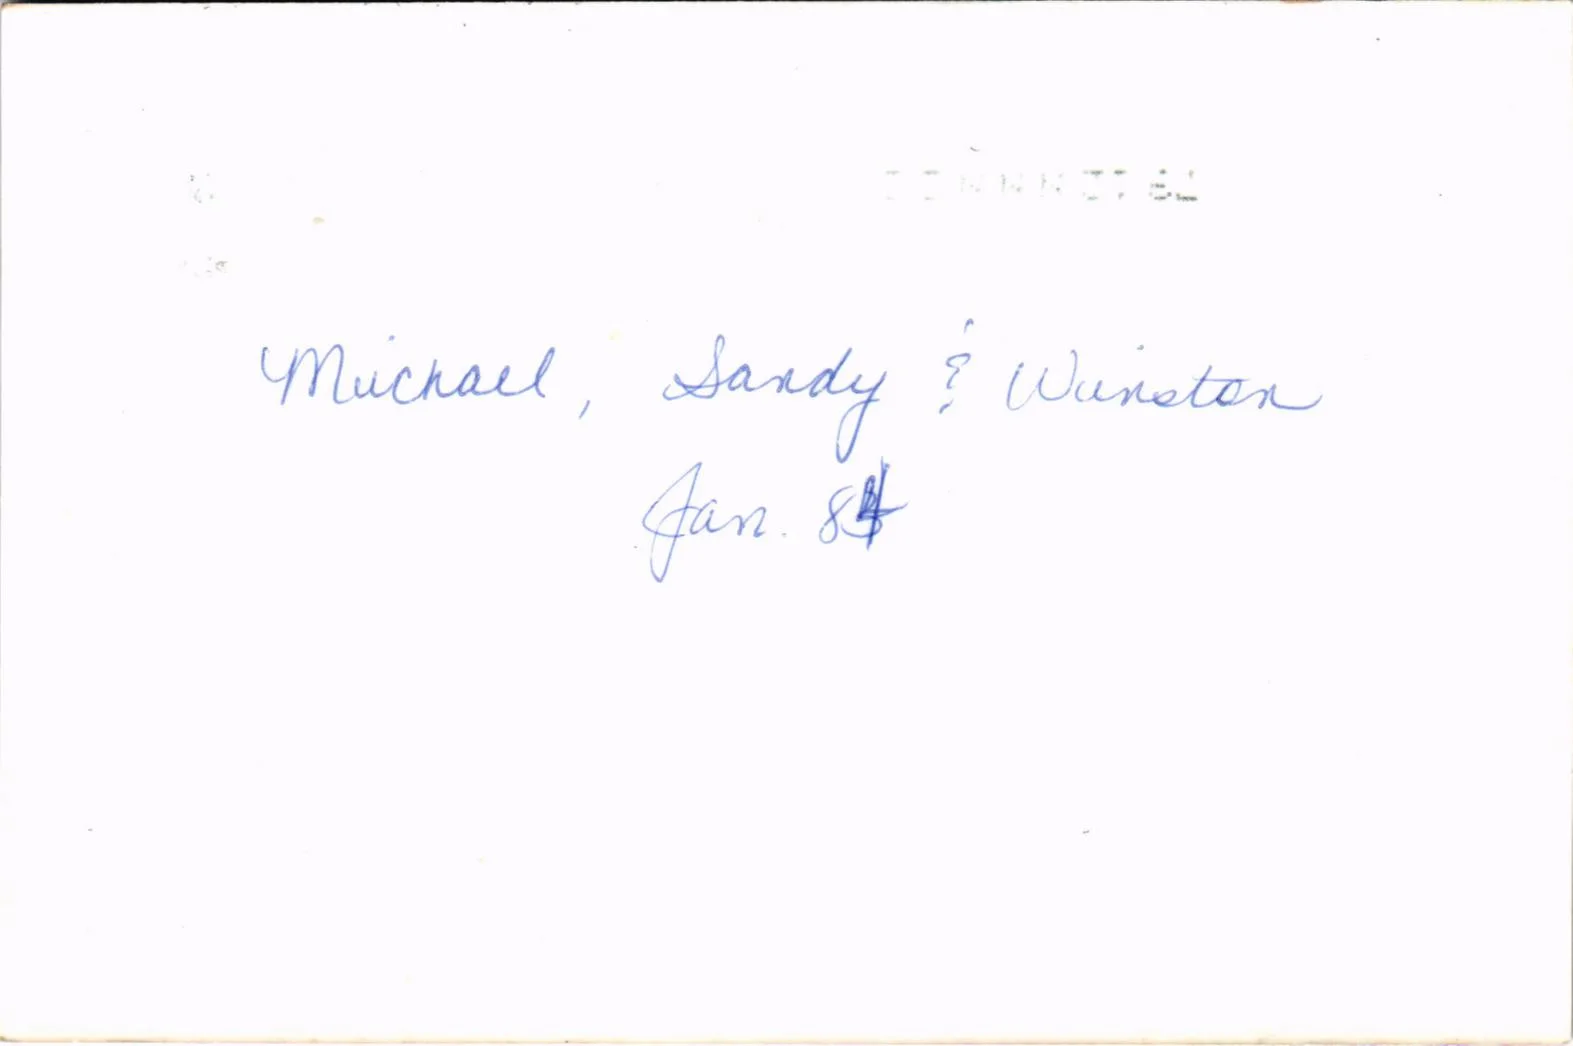 Michael, Sandy & Winston
Jan. 84